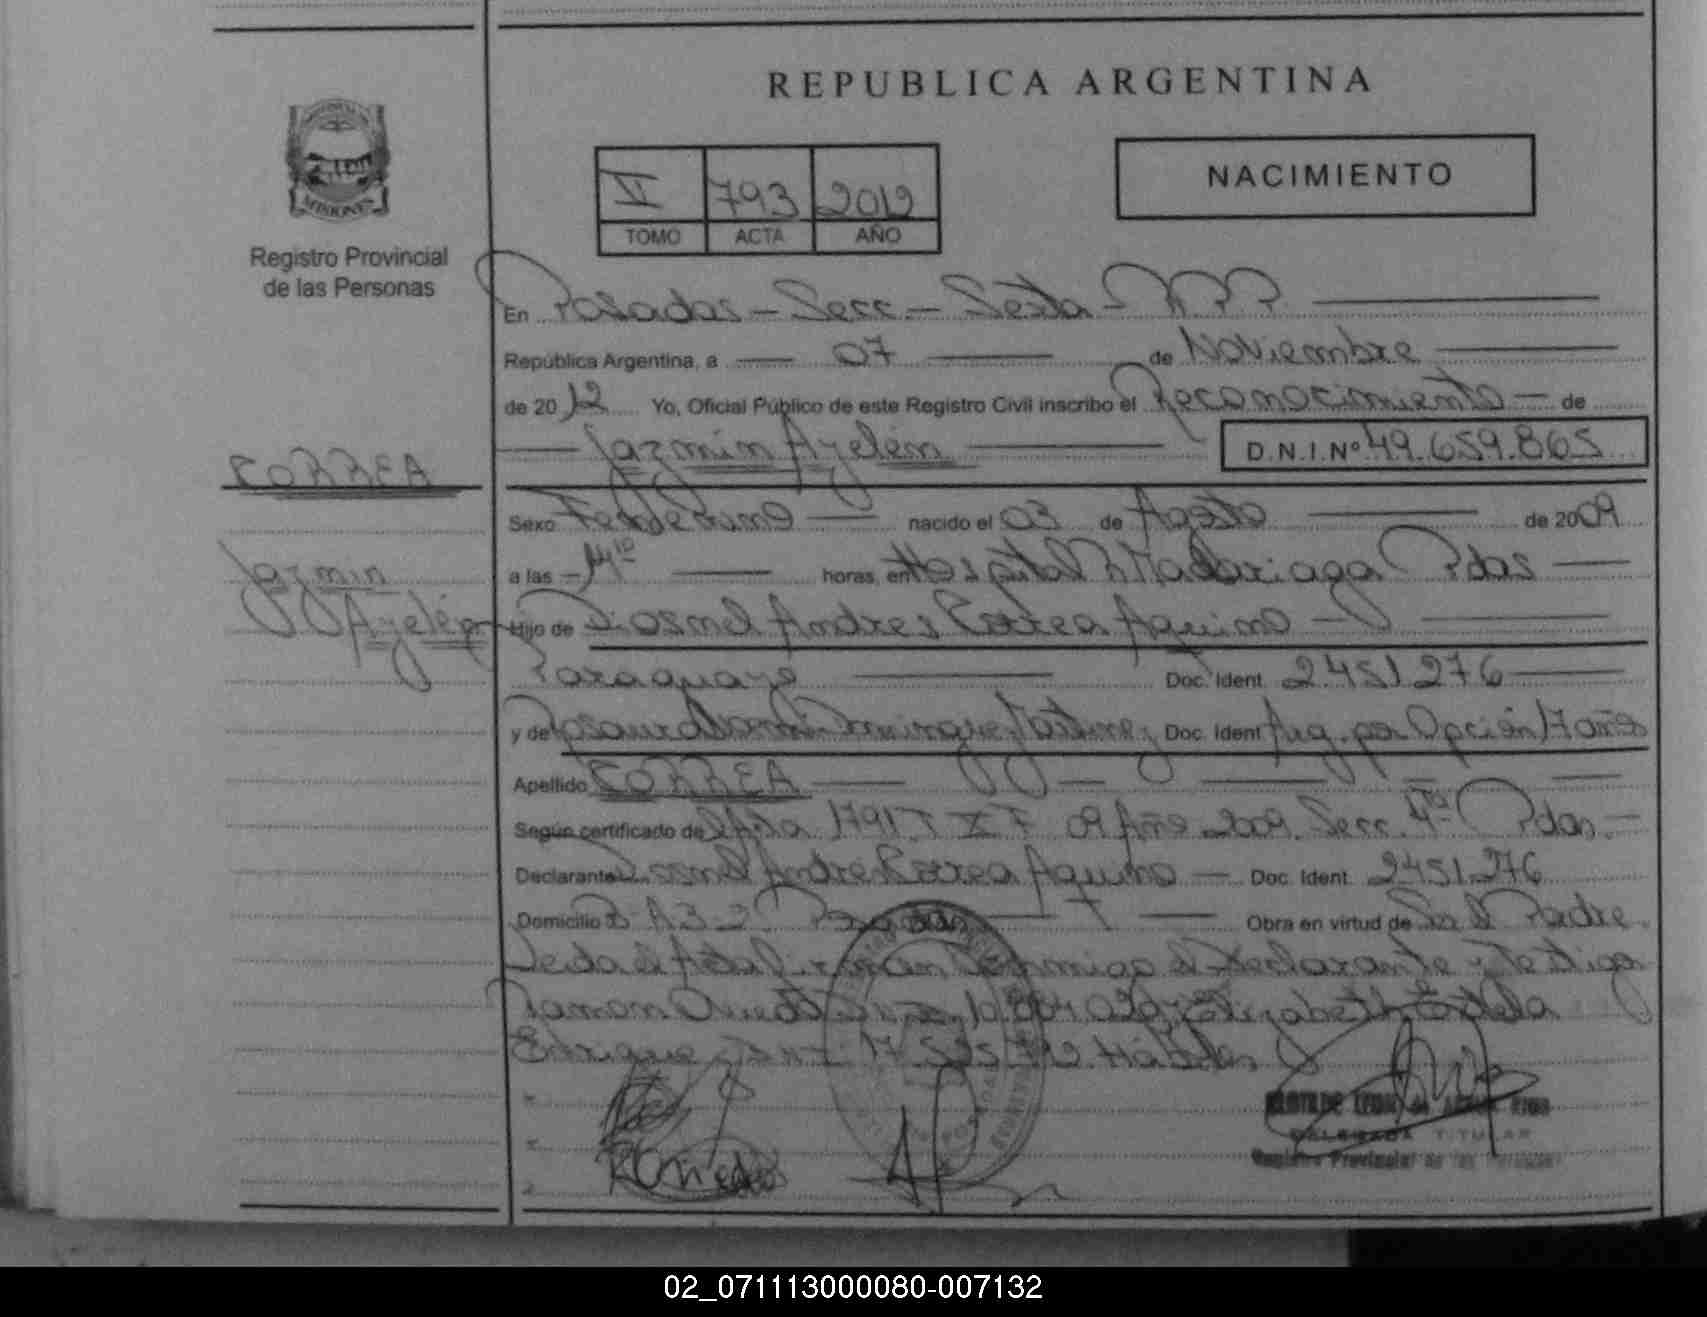 REPUBLICA ARGENTINA
MISIONES
Registro Provincial
de las Personas
VI 793 2012
TOMO ACTA AÑO
NACIMIENTO
En Posadas - Secc. - Sexta -
República Argentina, a 07 de Noviembre
de 2012 Yo, Oficial Público de este Registro Civil inscribo el Reconocimiento - de
Jazmin Ayelén D.N.I.Nº 49.659.865
CORREA
Jazmin
Ayelén
Sexo nacido el 03 de Agosto de 2009
a las horas, en Hospital R Madariaga Pdas
Hijo de Diosnel Andres Correa Aquino
Paraguayo Doc. Ident. 2.451.276
y de Doc. Ident. Arg. por Opción 17 años
Apellido CORREA
Según certificado de Acta 1791 T X F 09 Año 2009. Secc. 4ta Pdas.
Declarante Andre Correa Aquino - Doc. Ident. 2451.276
Domicilio Obra en virtud de Padre
Leida el Acta firman conmigo el Declarante y Testigo
Ramon Elizabeth Estela
Enrique Hábiles
DELEGADA TITULAR
Registro Provincial de las Personas
02_071113000080-007132